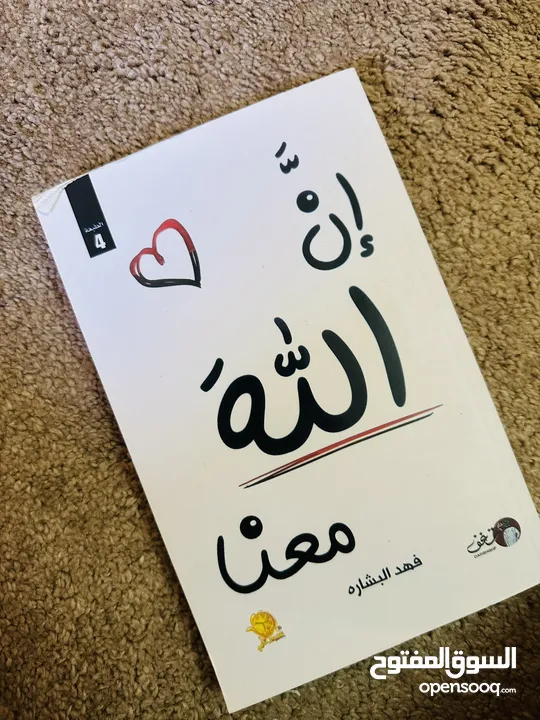 الطبعة
4
إنَّ
اللَّهَ
معنا
فهد البشاره
شغف
السوق المفتوح
opensooq.com